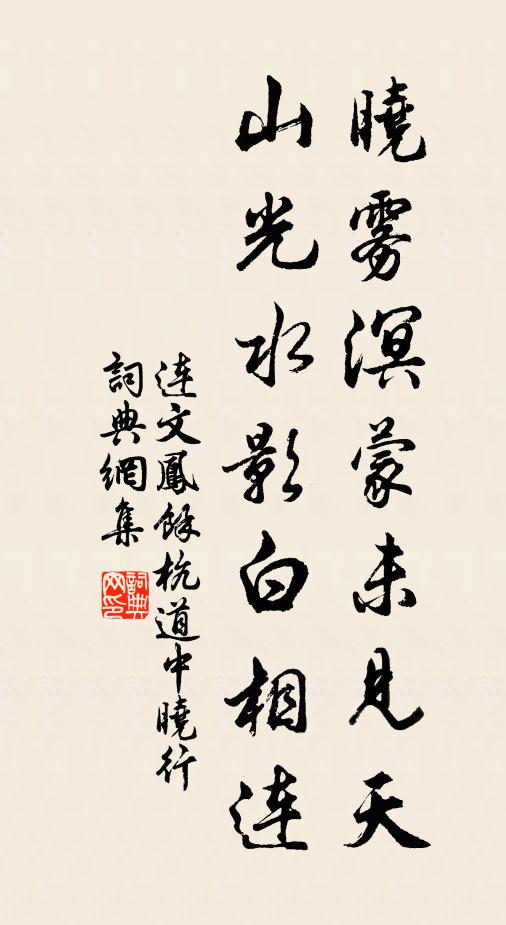 曉雾溟蒙未見天
山光水影白相連
連文鳳餘杭道中曉行
詞典網集
詞典網印